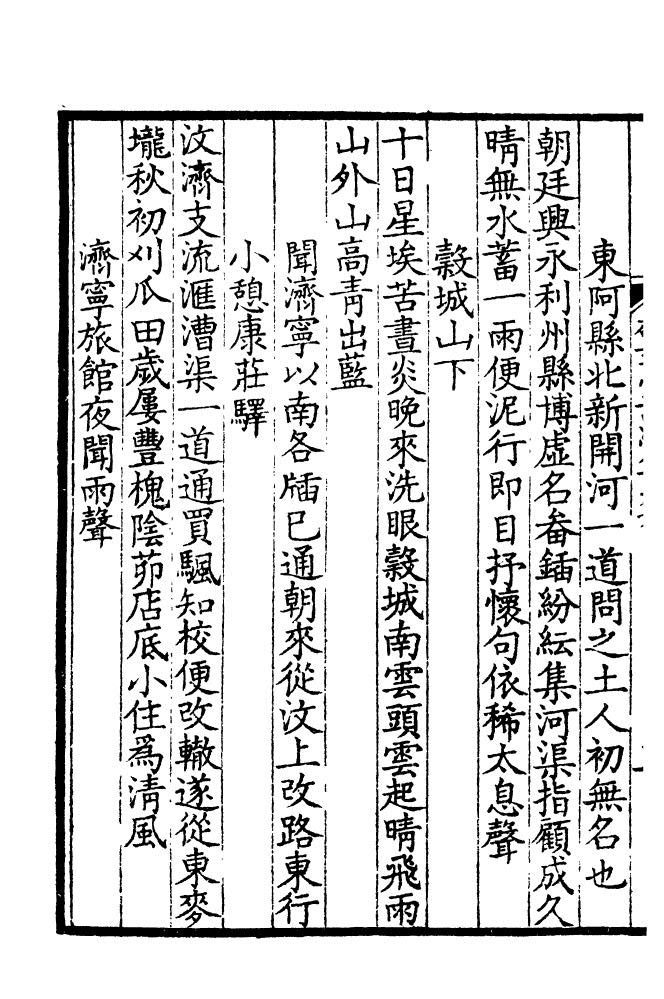 東阿縣北新開河一道問之土人初無名也
朝廷興永利州縣博虛名畚鍤紛紜集河渠指顧成久
晴無水蓄一雨便泥行即目抒懷句依稀太息聲
穀城山下
十日星埃苦晝炎晚來洗眼穀城南雲頭雲起晴飛雨
山外山高青出藍
聞濟寧以南各牐已通朝來從汶上改路東行
小憩康莊驛
汶濟支流滙漕渠一道通買颿知校便改轍遂從東麥
壠秋初刈瓜田歲屢豐槐陰茆店底小住爲清風
濟寧旅館夜聞雨聲